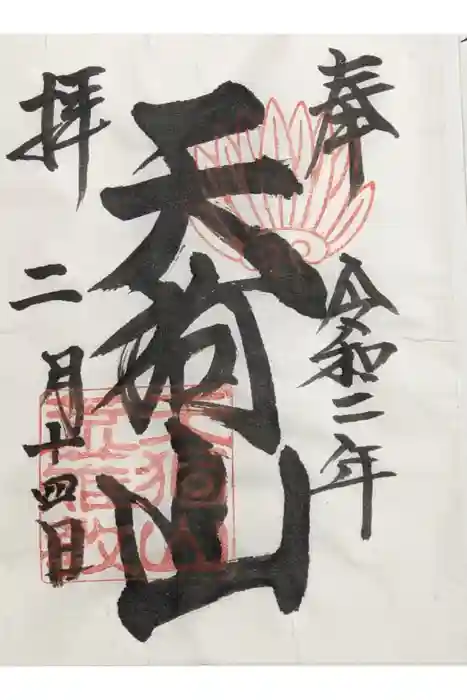 奉 令和二年
天狗山
拝 二月十四日
天狗山